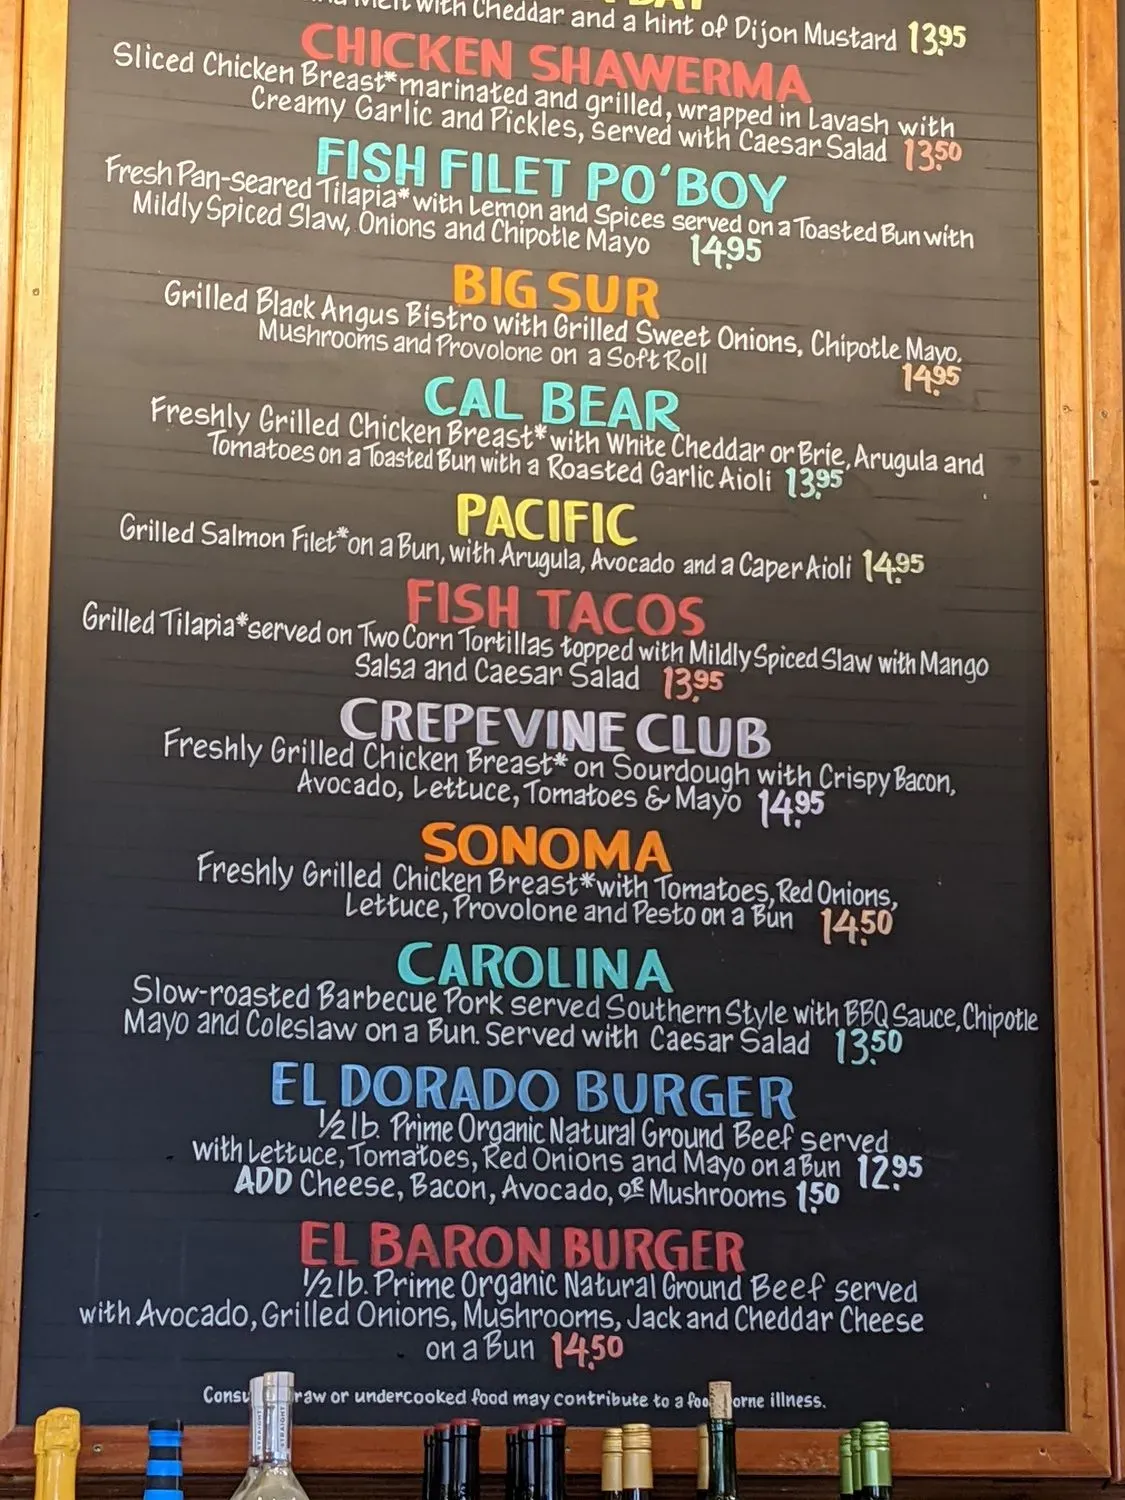 Melt with Cheddar and a hint of Dijon Mustard 13.95
CHICKEN SHAWERMA
Sliced Chicken Breast* marinated and grilled, wrapped in Lavash with
Creamy Garlic and Pickles, Served with Caesar Salad 13.50
FISH FILET PO'BOY
Fresh Pan-seared Tilapia* with Lemon and Spices served on a Toasted Bun with
Mildly Spiced Slaw, Onions and Chipotle Mayo 14.95
BIG SUR
Grilled Black Angus Bistro with Grilled Sweet Onions, Chipotle Mayo.
Mushrooms and Provolone on a Soft Roll
14.95
CAL BEAR
Freshly Grilled Chicken Breast* with White Cheddar or Brie, Arugula and
Tomatoes on a Toasted Bun with a Roasted Garlic Aioli 13.95
PACIFIC
Grilled Salmon Filet* on a Bun, with Arugula, Avocado and a Caper Aioli 14.95
FISH TACOS
Grilled Tilapia* served on Two Corn Tortillas topped with Mildly Spiced Slaw with Mango
Salsa and Caesar Salad 13.95
CREPEVINE CLUB
Freshly Grilled Chicken Breast* on Sourdough with Crispy Bacon,
Avocado, Lettuce, Tomatoes & Mayo 14.95
SONOMA
Freshly Grilled Chicken Breast* with Tomatoes, Red Onions,
Lettuce, Provolone and Pesto on a Bun 14.50
CAROLINA
Slow-roasted Barbecue Pork served Southern Style with BBQ Sauce, Chipotle
Mayo and Coleslaw on a Bun. Served with Caesar Salad 13.50
EL DORADO BURGER
1/2 lb. Prime Organic Natural Ground Beef served
with Lettuce, Tomatoes, Red Onions and Mayo on a Bun 12.95
ADD Cheese, Bacon, Avocado, OR Mushrooms 1.50
EL BARON BURGER
1/2 lb. Prime Organic Natural Ground Beef served
with Avocado, Grilled Onions, Mushrooms, Jack and Cheddar Cheese
on a Bun 14.50
raw or undercooked food may contribute to a illness.
STRAIGHT STRAIGHT